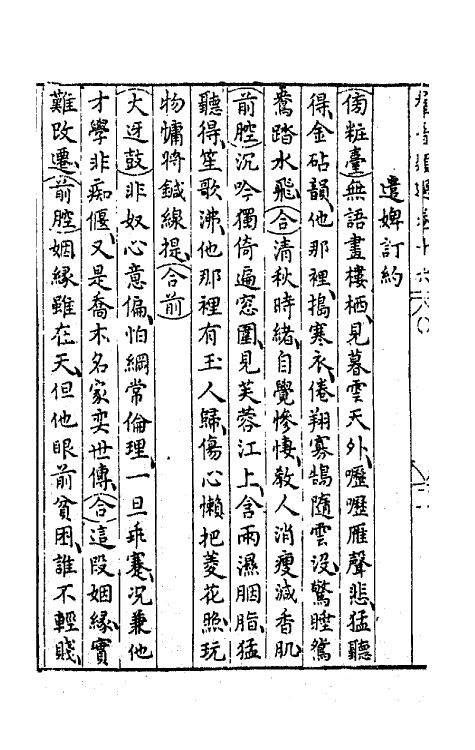 遣婢訂約
傍粧臺無語畫樓栖見暮雲天外嚦嚦雁聲悲猛聽
得金砧韻他那裡搗寒衣倦翔寡鵠隨雲没驚睡鴛
鴦踏水飛合清秋時緒自覺慘悽教人消瘦減香肌
前腔沉吟獨倚遍窓圍見芙蓉江上含雨濕胭脂猛
聽得笙歌沸他那裡有玉人歸傷心懶把菱花照玩
物慵將鍼線提合前
大迓鼓非奴心意偏怕綱常倫理一旦乖蹇况兼他
才學非痴偃又是喬木名家奕世傳合這段姻緣實
難改遷前腔姻緣雖在天但他眼前貧困誰不輕賤